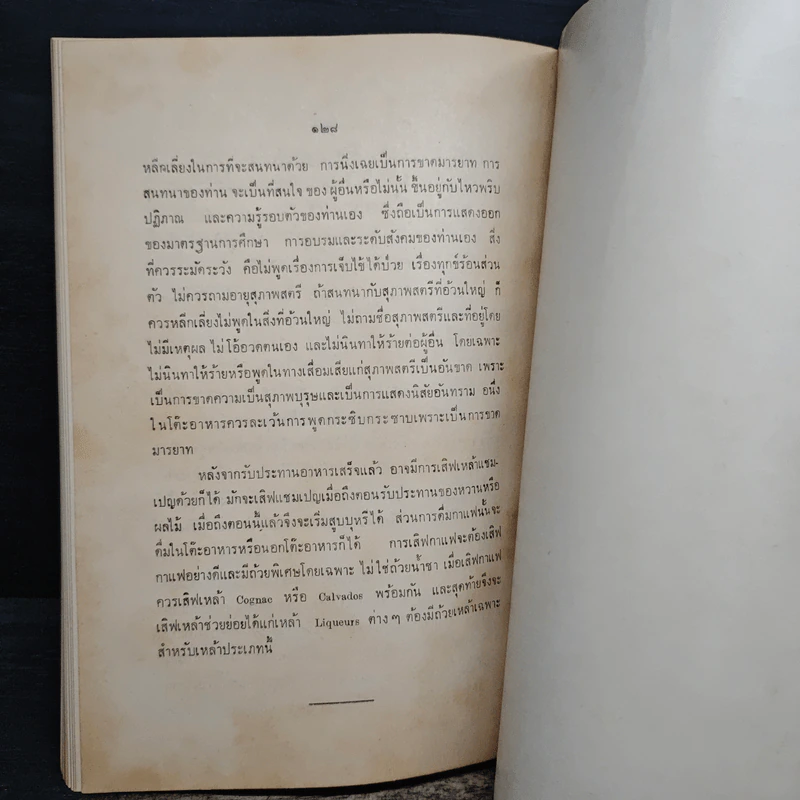 ๑๒๘
หลีกเลี่ยงในการที่จะสนทนาด้วย การนิ่งเฉยเป็นการขาดมารยาท การ
สนทนาของท่าน จะเป็นที่สนใจ ของ ผู้อื่นหรือไม่นั้น ขึ้นอยู่กับไหวพริบ
ปฏิภาณ และความรู้รอบตัวของท่านเอง ซึ่งถือเป็นการแสดงออก
ของมาตรฐานการศึกษา การอบรมและระดับสังคมของท่านเอง สิ่ง
ที่ควรระมัดระวัง คือไม่พูดเรื่องการเจ็บไข้ได้ป่วย เรื่องทุกข์ร้อนส่วน
ตัว ไม่ควรถามอายุสุภาพสตรี ถ้าสนทนากับสุภาพสตรีที่อ้วนใหญ่ ก็
ควรหลีกเลี่ยงไม่พูดในสิ่งที่อ้วนใหญ่ ไม่ถามชื่อสุภาพสตรีและที่อยู่โดย
ไม่มีเหตุผล ไม่โอ้อวดตนเอง และไม่นินทาให้ร้ายต่อผู้อื่น โดยเฉพาะ
ไม่นินทาให้ร้ายหรือพูดในทางเสื่อมเสียแก่สุภาพสตรีเป็นอันขาด เพราะ
เป็นการขาดความเป็นสุภาพบุรุษและเป็นการแสดงนิสัยอันทราม อนึ่ง
ในโต๊ะอาหารควรละเว้นการพูดกระซิบกระซาบเพราะเป็นการขาด
มารยาท
หลังจากรับประทานอาหารเสร็จแล้ว อาจมีการเสิฟเหล้าแชม-
เปญด้วยก็ได้ มักจะเสิฟแชมเปญเมื่อถึงตอนรับประทานของหวานหรือ
ผลไม้ เมื่อถึงตอนนี้แล้วจึงจะเริ่มสูบบุหรี่ได้ ส่วนการดื่มกาแฟนั้นจะ
ดื่มในโต๊ะอาหารหรือนอกโต๊ะอาหารก็ได้ การเสิฟกาแฟจะต้องเสิฟ
กาแฟอย่างดีและมีถ้วยพิเศษโดยเฉพาะ ไม่ใช่ถ้วยน้ำชา เมื่อเสิฟกาแฟ
ควรเสิฟเหล้า Cognac หรือ Calvados พร้อมกัน และสุดท้ายจึงจะ
เสิฟเหล้าช่วยย่อยได้แก่เหล้า Liqueurs ต่าง ๆ ต้องมีถ้วยเหล้าเฉพาะ
สำหรับเหล้าประเภทนี้